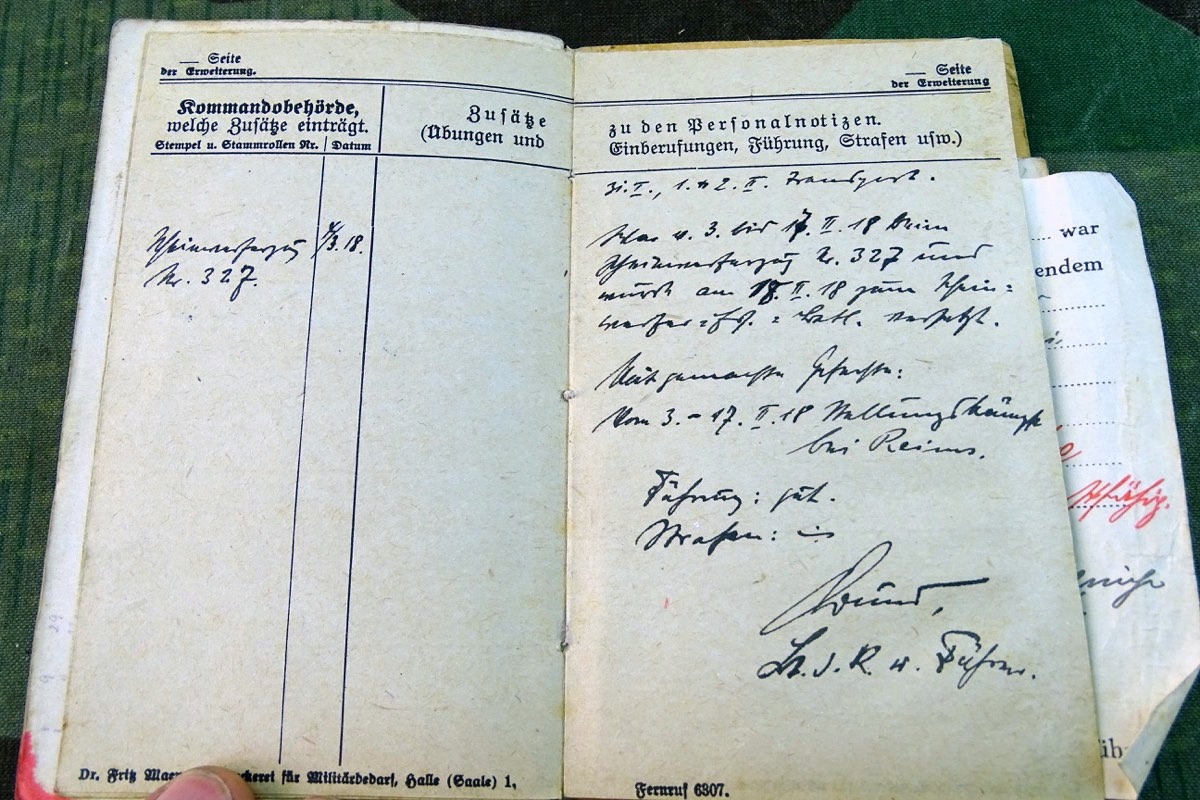 — Seite
der Erweiterung.
Kommandobehörde,
welche Zusätze einträgt.
Stempel u. Stammrollen Nr. | Datum
Zusätze
(Übungen und
Scheinwerferzug
Nr. 327.
3.18.
Dr. Fritz
für Militärbedarf, Halle (Saale) 1,
— Seite
der Erweiterung.
zu den Personalnotizen.
Einberufungen, Führung, Strafen usw.)
31.I., 1. u. 2. II. Transport.
War v. 3. bis 17. II. 18 beim
Scheinwerferzug Nr. 327 und
wurde am 18. II. 18 zum Schein=
werfer=Ers.=Batl. versetzt.
Mitgemachte Gefechte:
Vom 3.-17. II. 18 Stellungskämpfe
bei Reims.
Führung: gut.
Strafen:
Lt. d. R. u. Führer.
Fernruf 6307.
war
endem